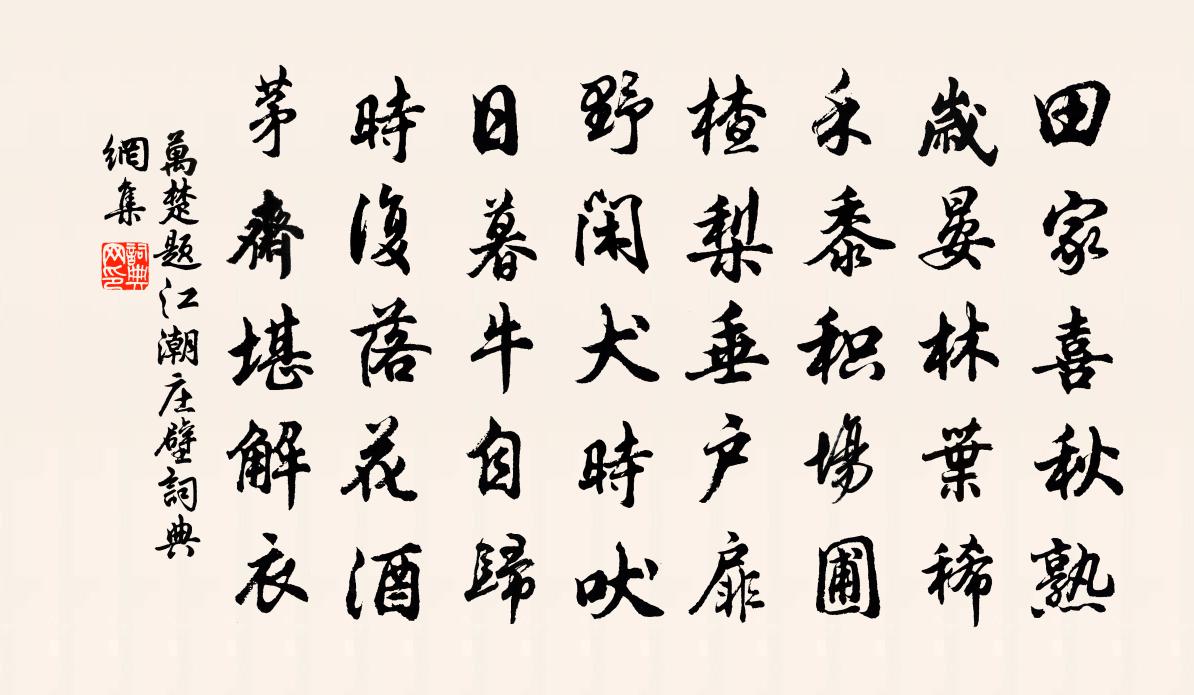 田家喜秋熟
歲晏林葉稀
禾黍积場圃
楂梨垂户扉
野闲犬時吠
日暮牛自歸
時復落花酒
茅齋堪解衣
萬楚题江潮庄壁詞典
網集
詞典网印